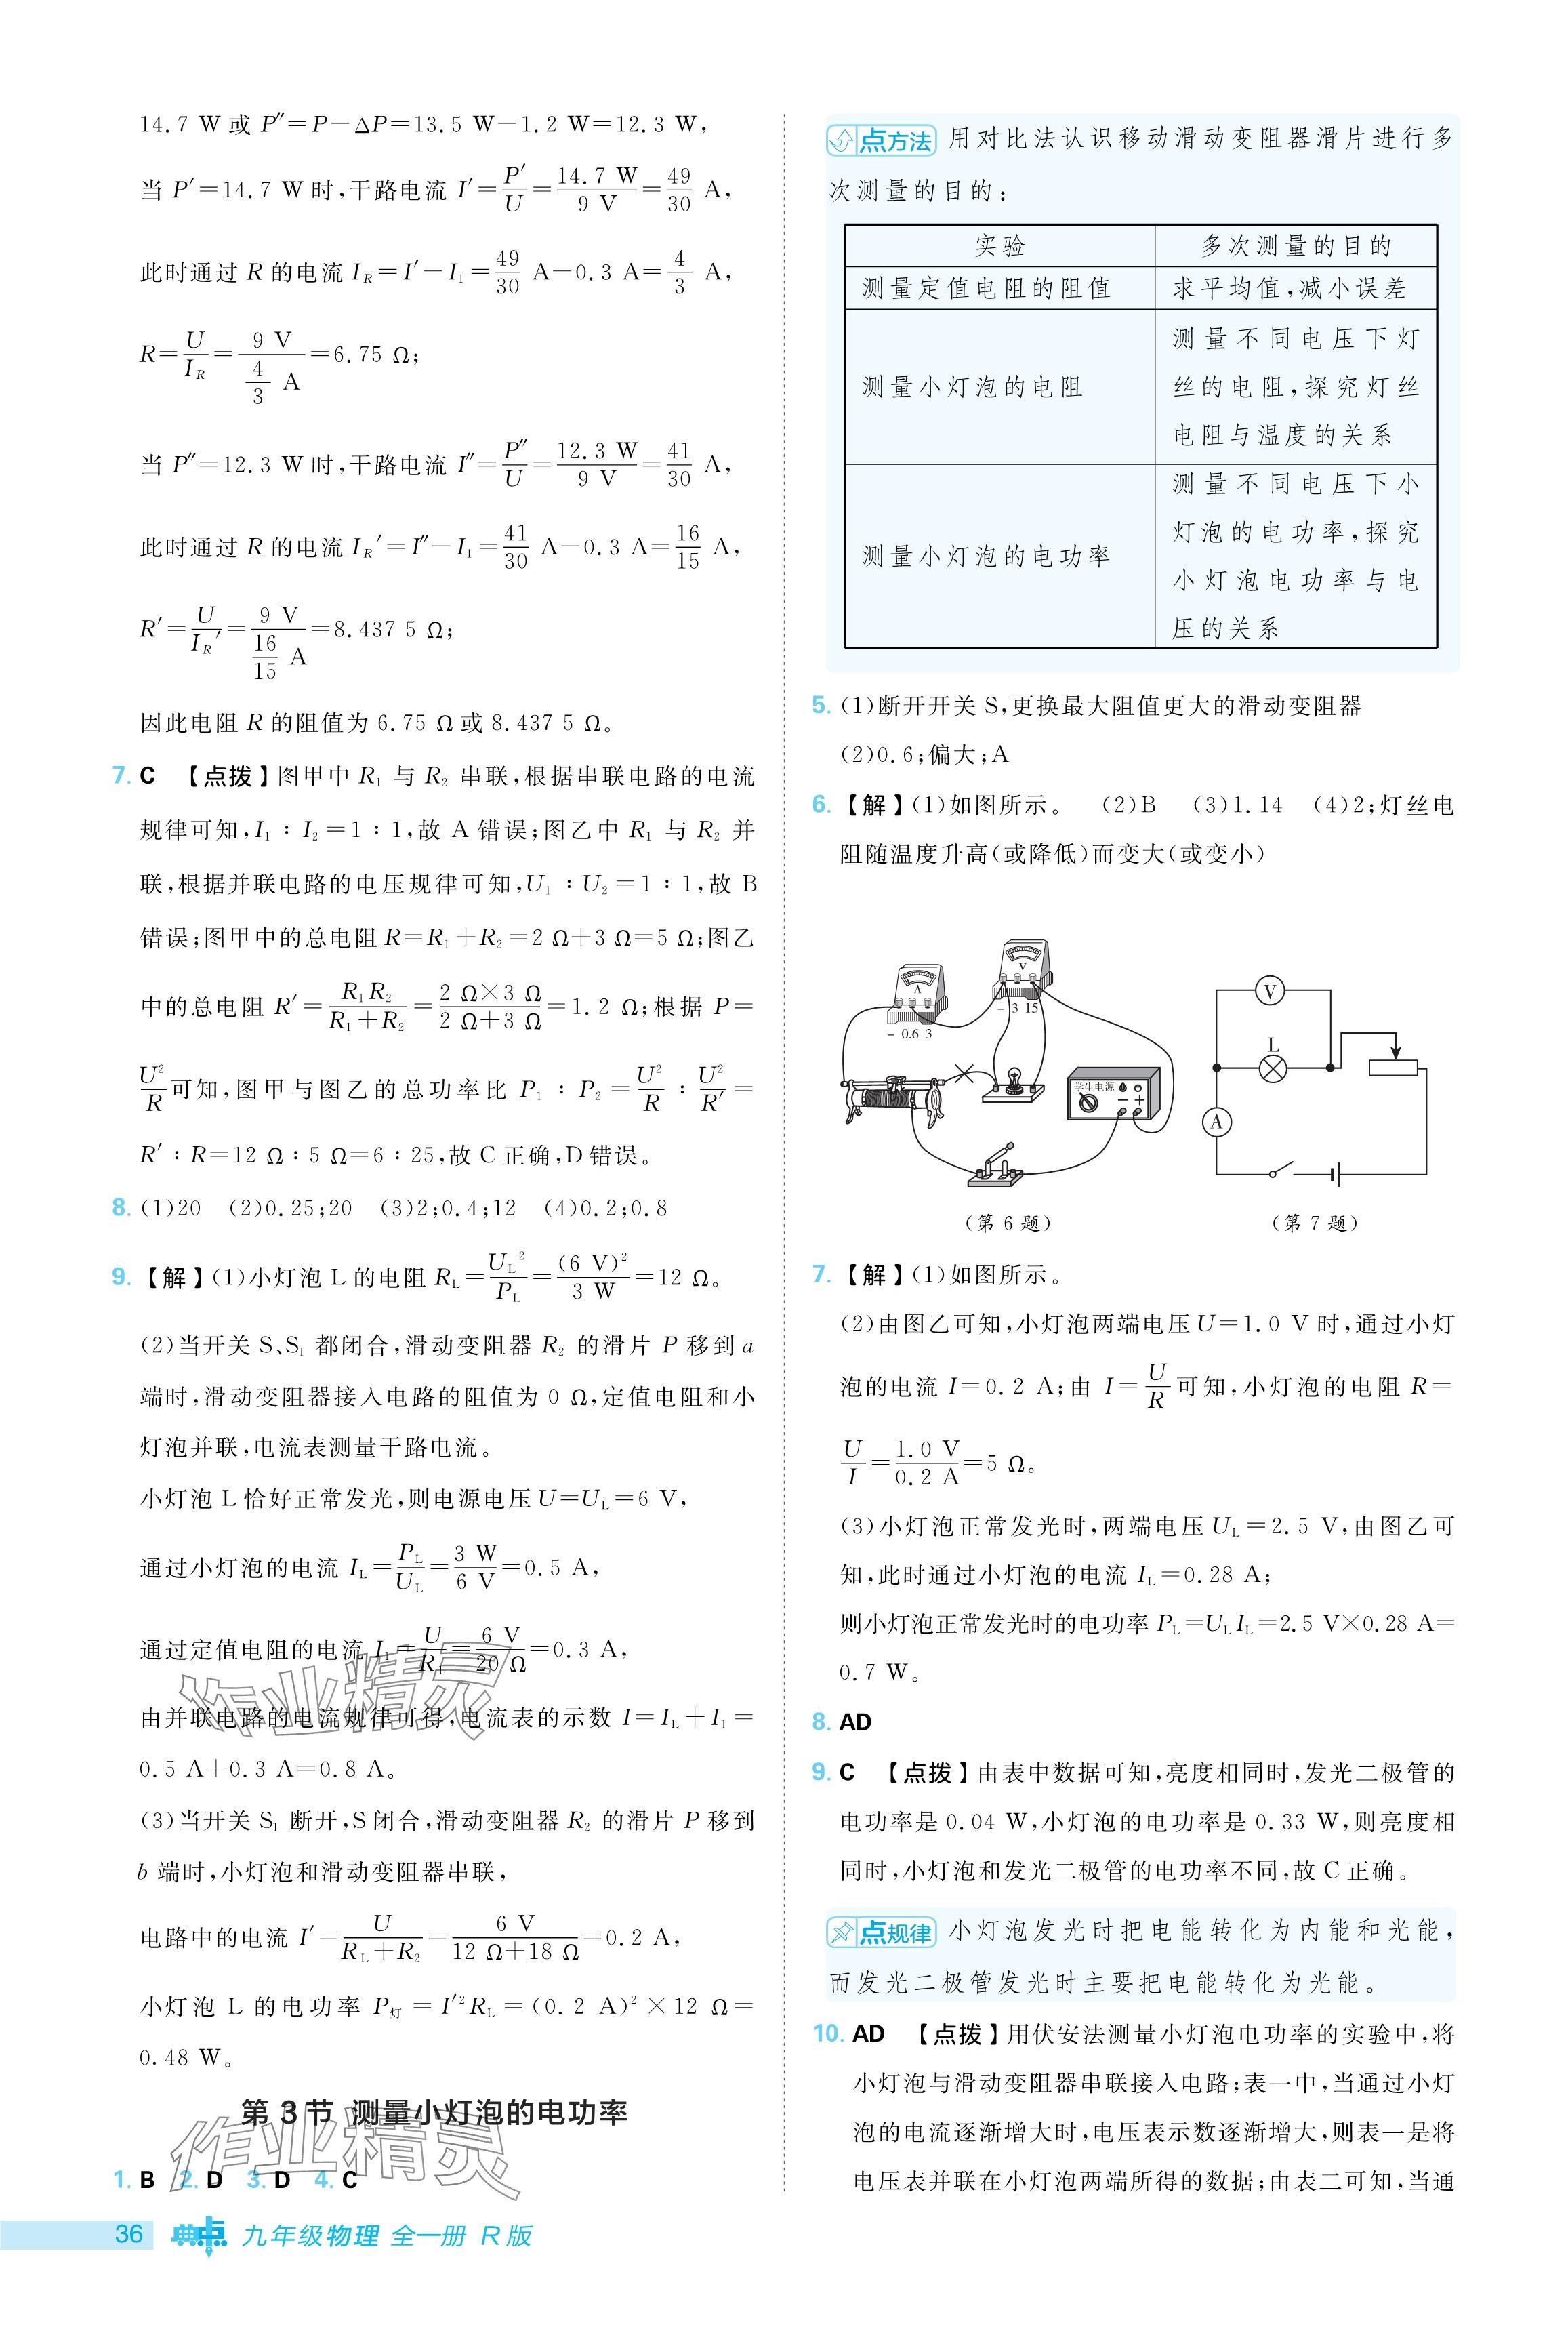 14.7 W 或 P″=P-ΔP=13.5 W-1.2 W=12.3 W,
当 P′=14.7 W 时,干路电流 I′=P′/U=14.7 W/9 V=49/30 A,
此时通过 R 的电流 I_R=I′-I₁=49/30 A-0.3 A=4/3 A,
R=U/I_R=9 V/(4/3 A)=6.75 Ω;
当 P″=12.3 W 时,干路电流 I″=P″/U=12.3 W/9 V=41/30 A,
此时通过 R 的电流 I_R′=I″-I₁=41/30 A-0.3 A=16/15 A,
R′=U/I_R′=9 V/(16/15 A)=8.437 5 Ω;
因此电阻 R 的阻值为 6.75 Ω 或 8.437 5 Ω。
7. C 【点拨】图甲中 R₁ 与 R₂ 串联,根据串联电路的电流
规律可知,I₁∶I₂=1∶1,故 A 错误;图乙中 R₁ 与 R₂ 并
联,根据并联电路的电压规律可知,U₁∶U₂=1∶1,故 B
错误;图甲中的总电阻 R=R₁+R₂=2 Ω+3 Ω=5 Ω;图乙
中的总电阻 R′=R₁R₂/(R₁+R₂)=(2 Ω×3 Ω)/(2 Ω+3 Ω)=1.2 Ω;根据 P=
U²/R可知,图甲与图乙的总功率比 P₁∶P₂=U²/R∶U²/R′=
R′∶R=12 Ω∶5 Ω=6∶25,故 C 正确,D 错误。
8. (1)20 (2)0.25;20 (3)2;0.4;12 (4)0.2;0.8
9. 【解】(1)小灯泡 L 的电阻 R_L=U_L²/P_L=(6 V)²/3 W=12 Ω。
(2)当开关 S、S₁ 都闭合,滑动变阻器 R₂ 的滑片 P 移到 a
端时,滑动变阻器接入电路的阻值为 0 Ω,定值电阻和小
灯泡并联,电流表测量干路电流。
小灯泡 L 恰好正常发光,则电源电压 U=U_L=6 V,
通过小灯泡的电流 I_L=P_L/U_L=3 W/6 V=0.5 A,
通过定值电阻的电流 I₁=U/R₁=6 V/20 Ω=0.3 A,
由并联电路的电流规律可得,电流表的示数 I=I_L+I₁=
0.5 A+0.3 A=0.8 A。
(3)当开关 S₁ 断开,S 闭合,滑动变阻器 R₂ 的滑片 P 移到
b 端时,小灯泡和滑动变阻器串联,
电路中的电流 I′=U/(R_L+R₂)=6 V/(12 Ω+18 Ω)=0.2 A,
小灯泡 L 的电功率 P_灯=I′²R_L=(0.2 A)²×12 Ω=
0.48 W。
第 3 节 测量小灯泡的电功率
1. B 2. D 3. D 4. C
36 典中点 九年级物理 全一册 R 版
作业精灵
作业精灵
点方法 用对比法认识移动滑动变阻器滑片进行多
次测量的目的:
实验 多次测量的目的
测量定值电阻的阻值 求平均值,减小误差
测量小灯泡的电阻
测量不同电压下灯
丝的电阻,探究灯丝
电阻与温度的关系
测量小灯泡的电功率
测量不同电压下小
灯泡的电功率,探究
小灯泡电功率与电
压的关系
5. (1)断开开关 S,更换最大阻值更大的滑动变阻器
(2)0.6;偏大;A
6. 【解】(1)如图所示。 (2)B (3)1.14 (4)2;灯丝电
阻随温度升高(或降低)而变大(或变小)
A
- 0.6 3
V
- 3 15
学生电源
- +
(第 6 题)
V
L
A
(第 7 题)
7. 【解】(1)如图所示。
(2)由图乙可知,小灯泡两端电压 U=1.0 V 时,通过小灯
泡的电流 I=0.2 A;由 I=U/R可知,小灯泡的电阻 R=
U/I=1.0 V/0.2 A=5 Ω。
(3)小灯泡正常发光时,两端电压 U_L=2.5 V,由图乙可
知,此时通过小灯泡的电流 I_L=0.28 A;
则小灯泡正常发光时的电功率 P_L=U_LI_L=2.5 V×0.28 A=
0.7 W。
8. AD
9. C 【点拨】由表中数据可知,亮度相同时,发光二极管的
电功率是 0.04 W,小灯泡的电功率是 0.33 W,则亮度相
同时,小灯泡和发光二极管的电功率不同,故 C 正确。
点规律 小灯泡发光时把电能转化为内能和光能,
而发光二极管发光时主要把电能转化为光能。
10. AD 【点拨】用伏安法测量小灯泡电功率的实验中,将
小灯泡与滑动变阻器串联接入电路;表一中,当通过小灯
泡的电流逐渐增大时,电压表示数逐渐增大,则表一是将
电压表并联在小灯泡两端所得的数据;由表二可知,当通